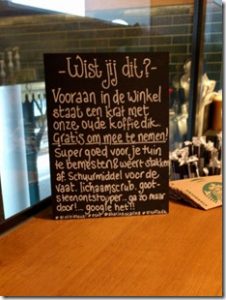 -Wist jij dit?-
Vooraan in de winkel
staat een krat met
onze oude koffiedik.
Gratis om mee te nemen!
Super goed voor je tuin
te bemesten & weert slakken
af. Schuurmiddel voor de
vaat. lichaamscrub. goot-
steenontstopper... ga zo maar
door!... google het!!